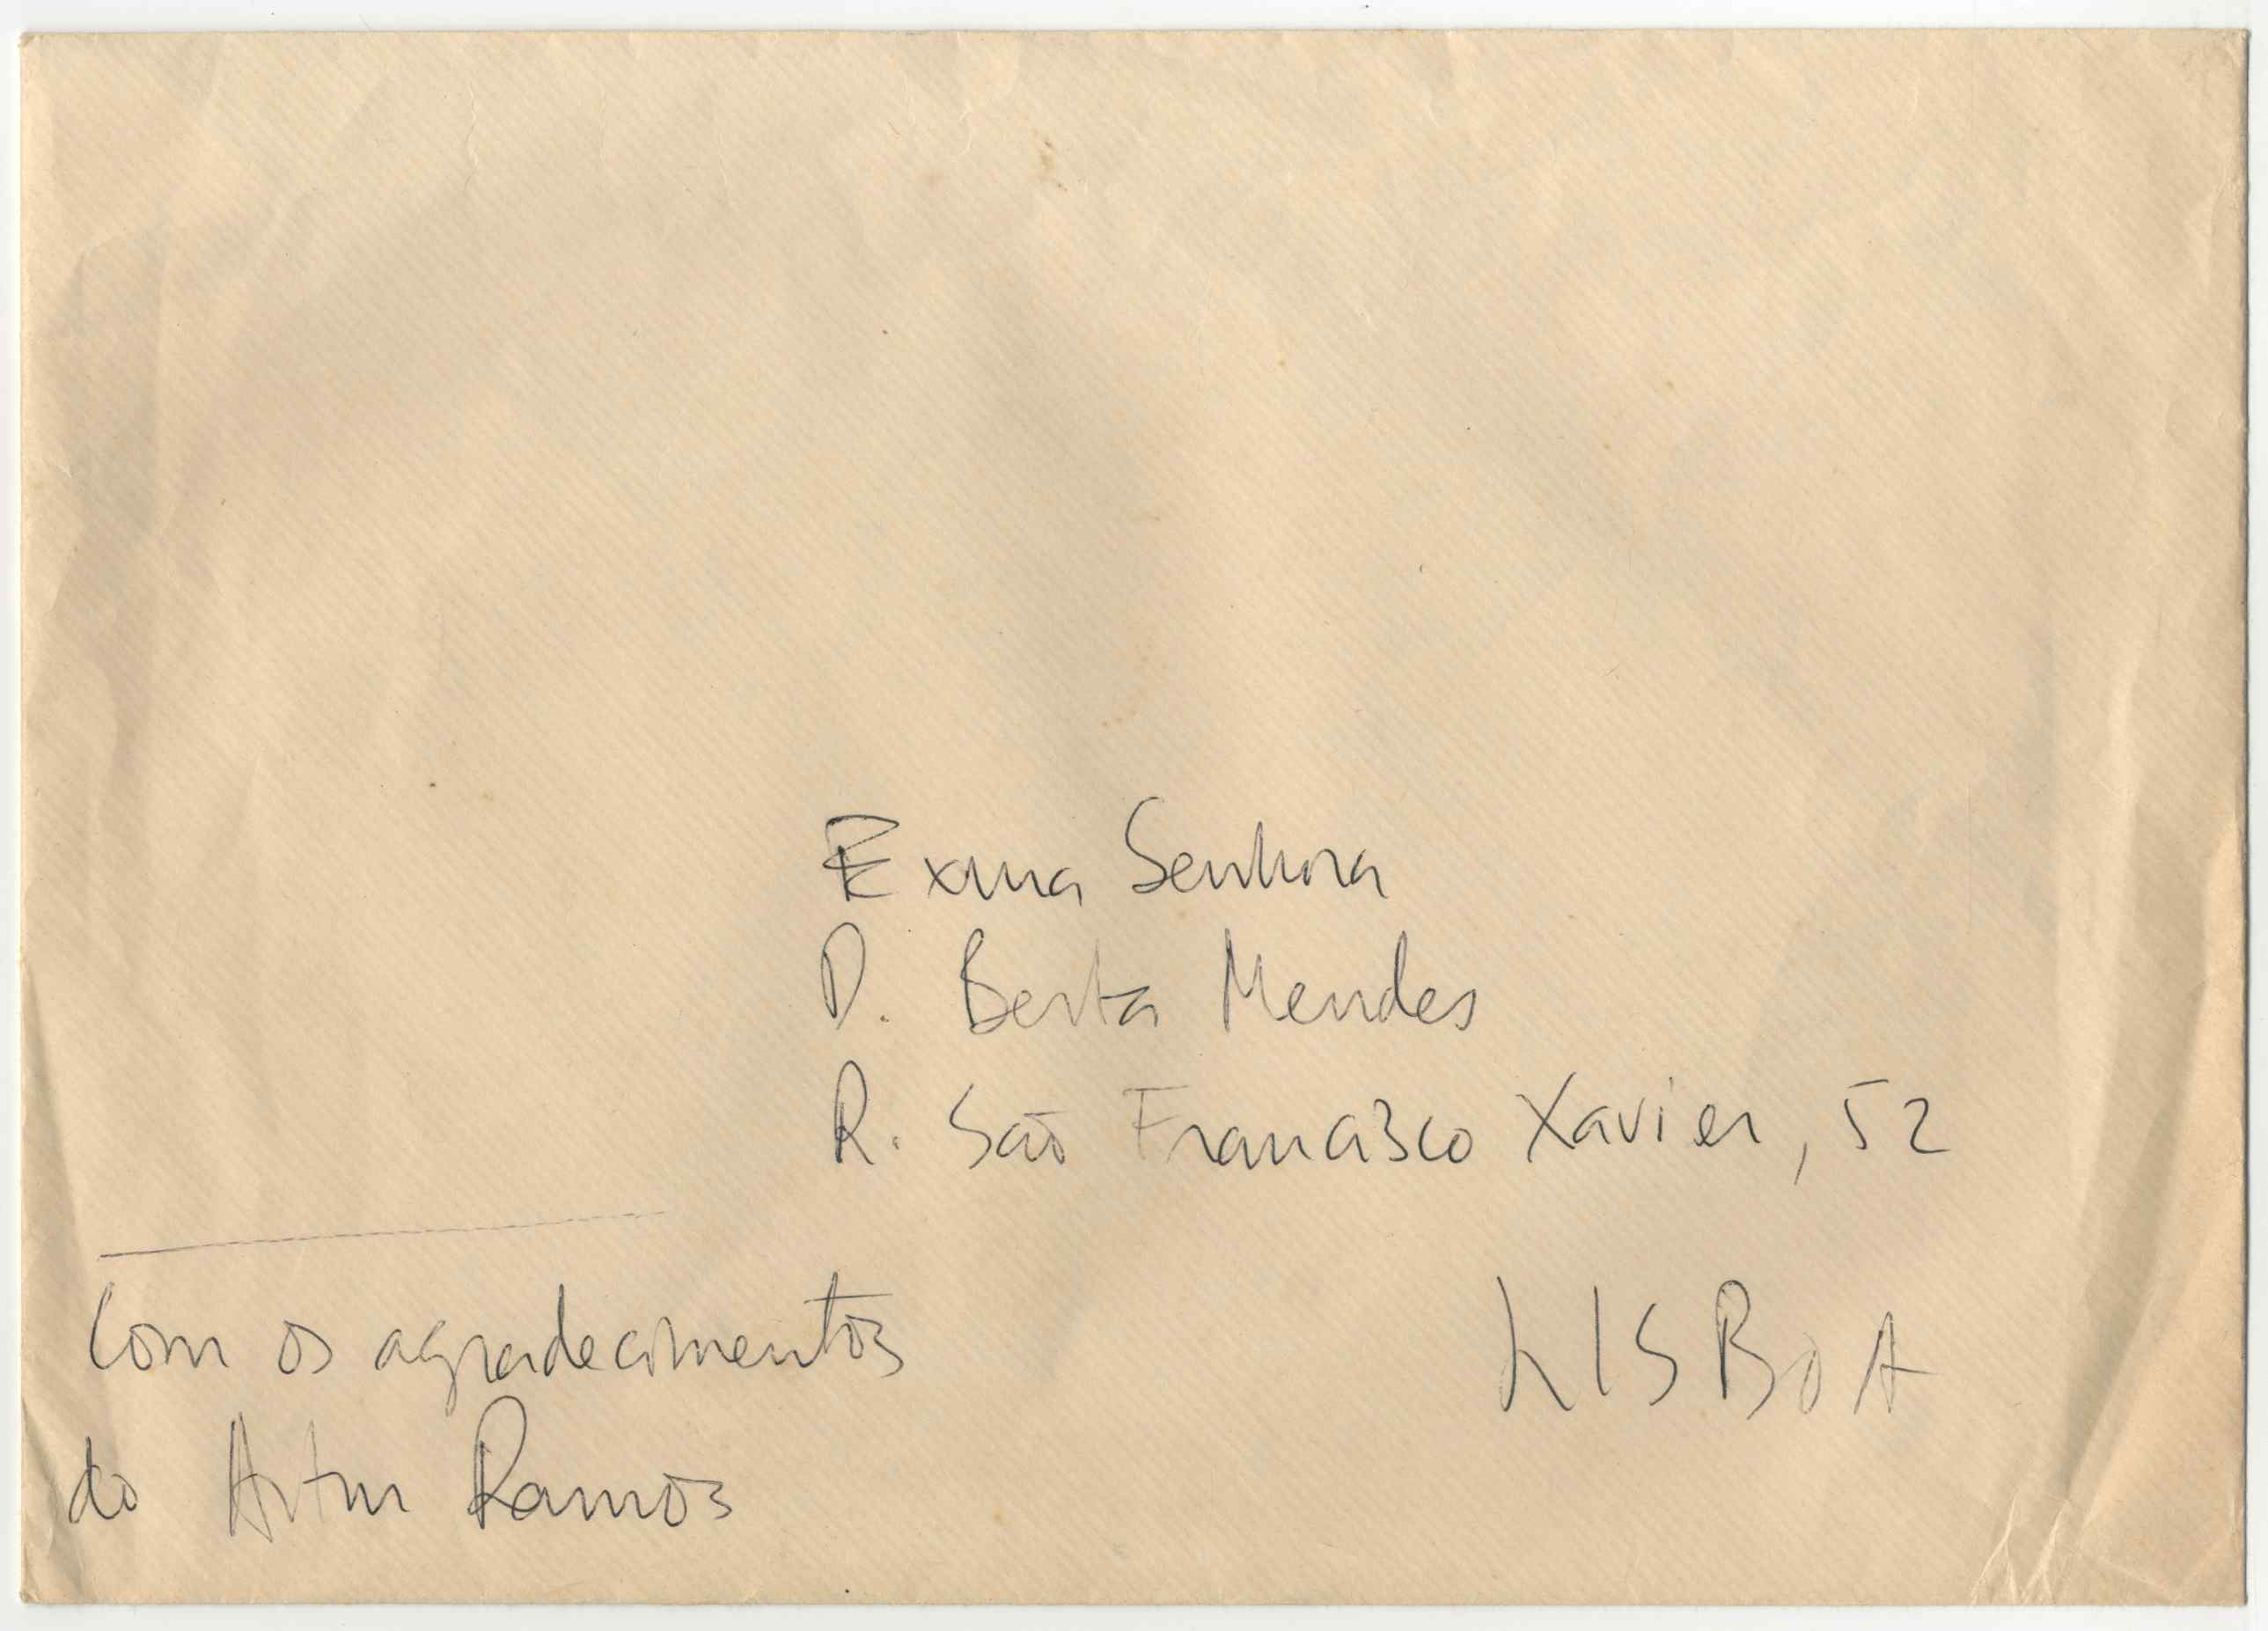 Exma Senhora
D. Berta Mendes
R. São Francisco Xavier, 52
LISBOA
Com os agradecimentos
do Artur Ramos